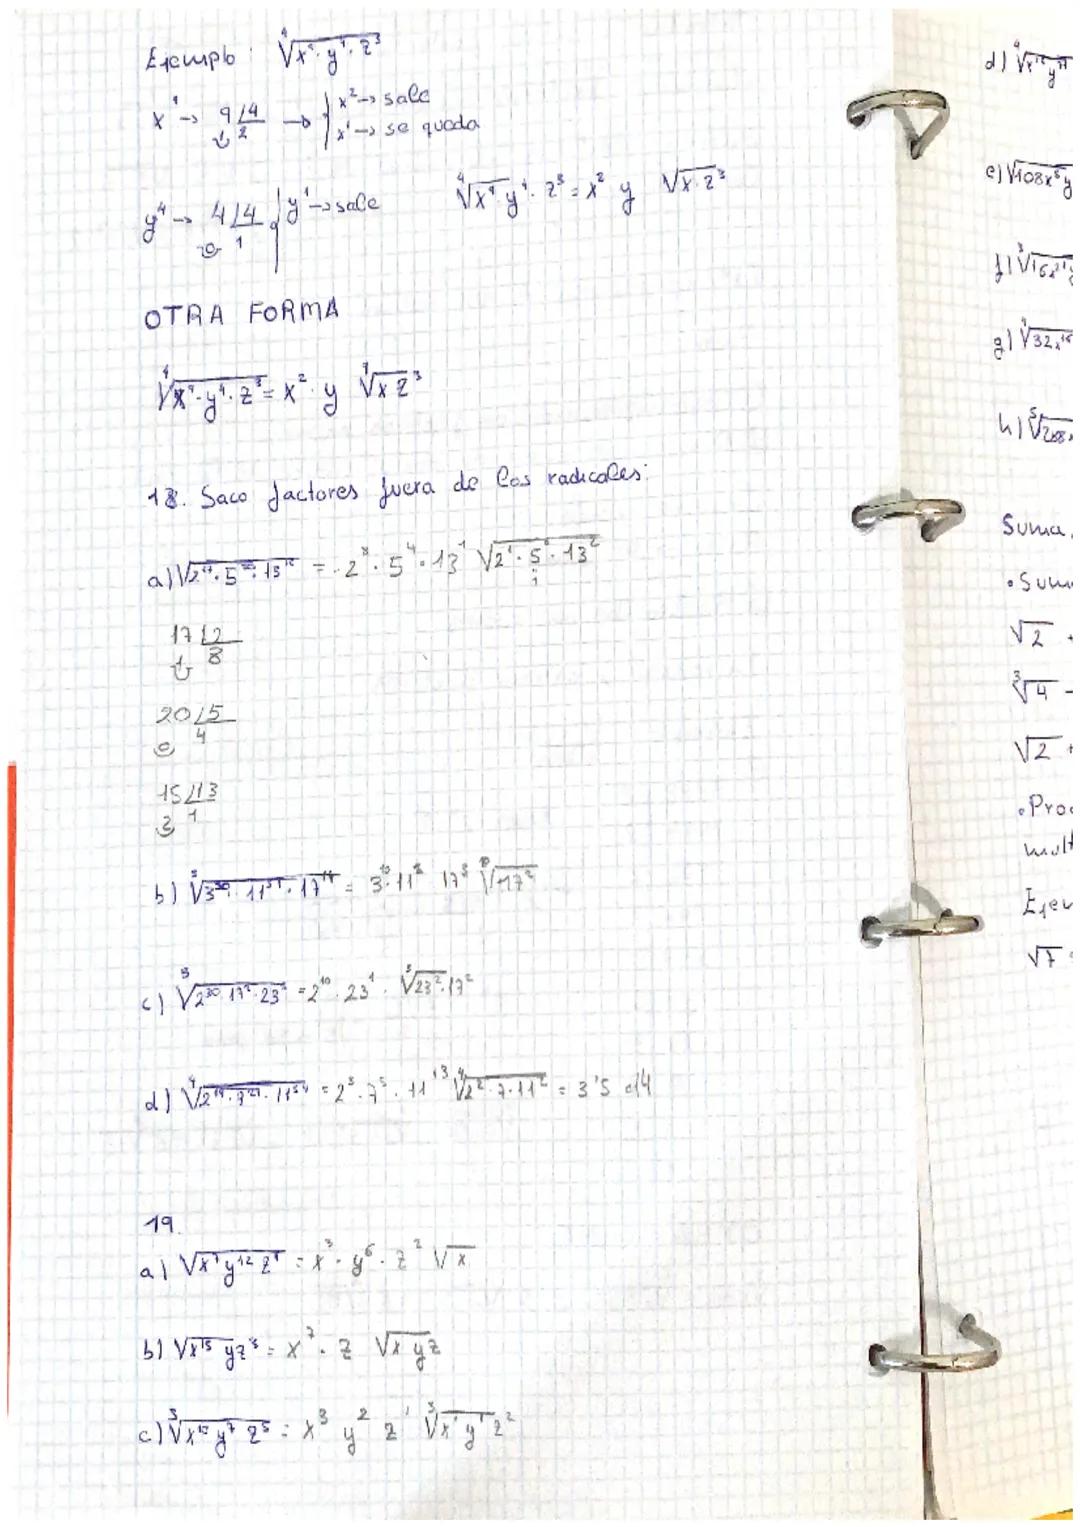 Ejemplo: ⁴√x⁹·y⁴·z³
x⁹ → 9 |4 → x² → sale
1 2 x¹ → se queda
y⁴ → 4 |4 y¹ → sale
0 1
⁴√x⁹ y⁴·z³ = x² y √x·z³
OTRA FORMA
⁴√x⁹·y⁴·z³ = x²·y ⁴√x z³
18. Saco factores fuera de los radicales:
a) √2¹⁷·5²⁰·13¹⁵ = 2⁸·5⁴·13¹ √2¹·5⁰·13²
17 |2
1 8
20 |5
0 4
15 |13
2 1
b) 3¹⁰·11 17³ √17²
c) ³√2³⁰·17²·23 = 2¹⁰·23¹·³√23²·17²
d) ⁴√2¹⁴·7²¹·11⁵⁴ = 2³·7⁵·11¹³ ⁴√2²·7·11² = 3'5 :14
19.
a) √x⁷ y¹² z⁴ = x³·y⁶·z² √x
b) √x¹⁵ y z³ = x⁷·z √x y z
c) ³√x¹⁰ y⁷ z⁵ = x³ y² z¹ ³√x¹ y¹ z²
d) ⁴√
e) √108x⁵y
f) ³√16x²¹y
g) ⁴√32x
h) ⁵√
Suma,
• Sum
√2 +
³√4 -
√2 +
• Pro
mult
Ejem
√7 =